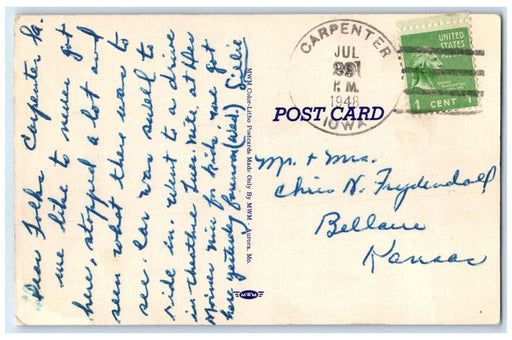 Dear Folks Carpenter Ia.
we like to never got
here, stopped a lot and
seen what there was to
see. Car was swell to
ride in. Went to a drive
in theathre Tues. nite. at Des
Moines nice for kids, we got
here yesterday forenoon (Wed.)
MWM Color-Litho Postcards Made Only By MWM - Aurora, Mo.
MWM
CARPENTER
JUL
P.M.
1948
IOWA
UNITED
STATES
POSTAGE
1 CENT 1
POST CARD
Mr. + Mrs.
Chris N. Frydendall
Bellaire
Kansas